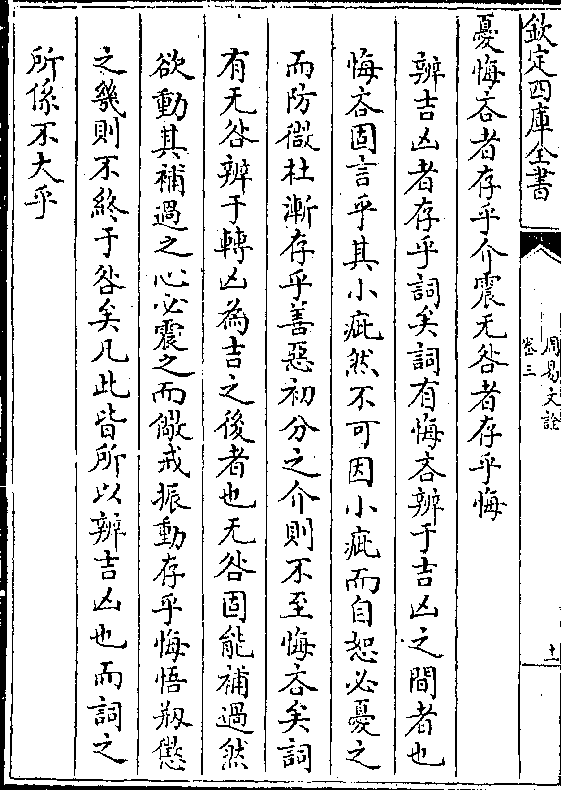 欽定四庫全書
周易文詮
卷三
十一
憂悔吝者存乎介震无咎者存乎悔
辨吉凶者存乎詞矣詞有悔吝辨于吉凶之間者也
悔吝固言乎其小疵然不可因小疵而自恕必憂之
而防微杜漸存乎善惡初分之介則不至悔吝矣詞
有无咎辨于轉凶為吉之後者也无咎固能補過然
欲動其補過之心必震之而儆戒振動存乎悔悟剏懲
之幾則不終于咎矣凡此皆所以辨吉凶也而詞之
所係不大乎